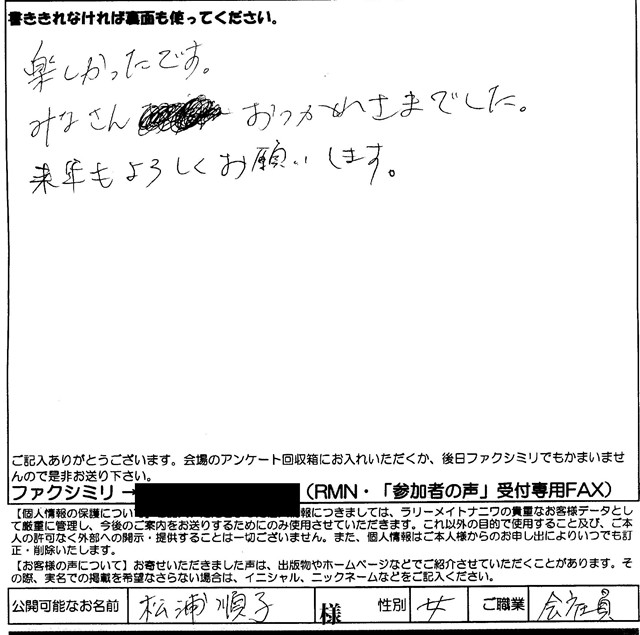 書ききれなければ裏面も使ってください。
楽しかったです。
みなさん おつかれさまでした。
来年もよろしくお願いします。
ご記入ありがとうございます。会場のアンケート回収箱にお入れいただくか、後日ファクシミリでもかまいませ
んので是非お送り下さい。
ファクシミリ→ （RMN・「参加者の声」受付専用FAX）
【個人情報の保護につい 情報につきましては、ラリーメイトナニワの貴重なお客様データとし
て厳重に管理し、今後のご案内をお送りするためにのみ使用させていただきます。これ以外の目的で使用すること及び、ご本
人の許可なく外部への開示・提供することは一切ございません。また、個人情報はご本人様からのお申し出によりいつでも訂
正・削除いたします。
【お客様の声について】お寄せいただきました声は、出版物やホームページなどでご紹介させていただくことがあります。そ
の際、実名での掲載を希望なさらない場合は、イニシャル、ニックネームなどをご記入ください。
公開可能なお名前 松浦順子 様 性別 女 ご職業 会社員